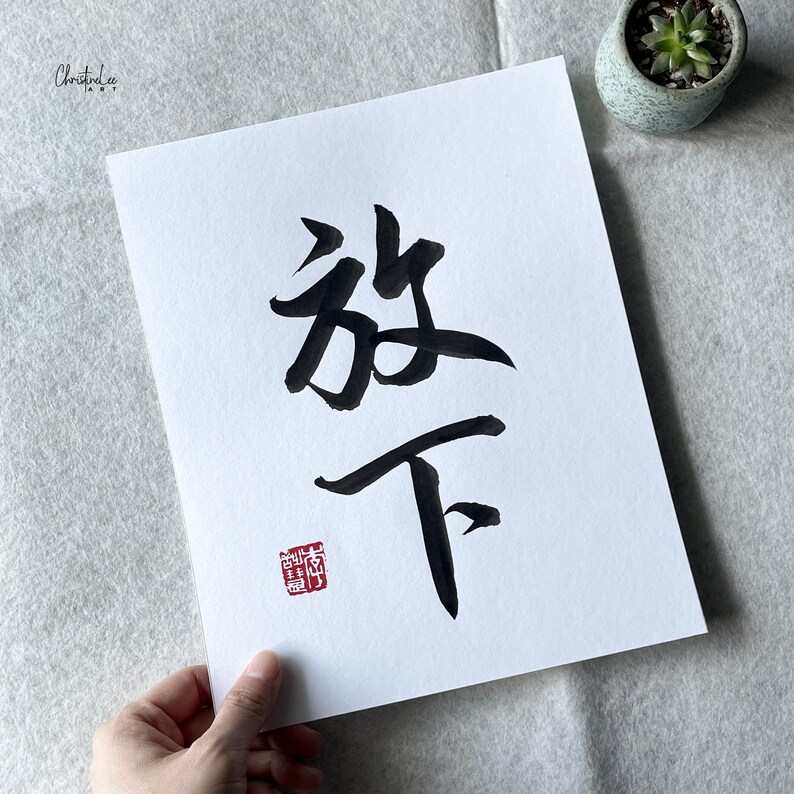 ChristineLee
ART
放下